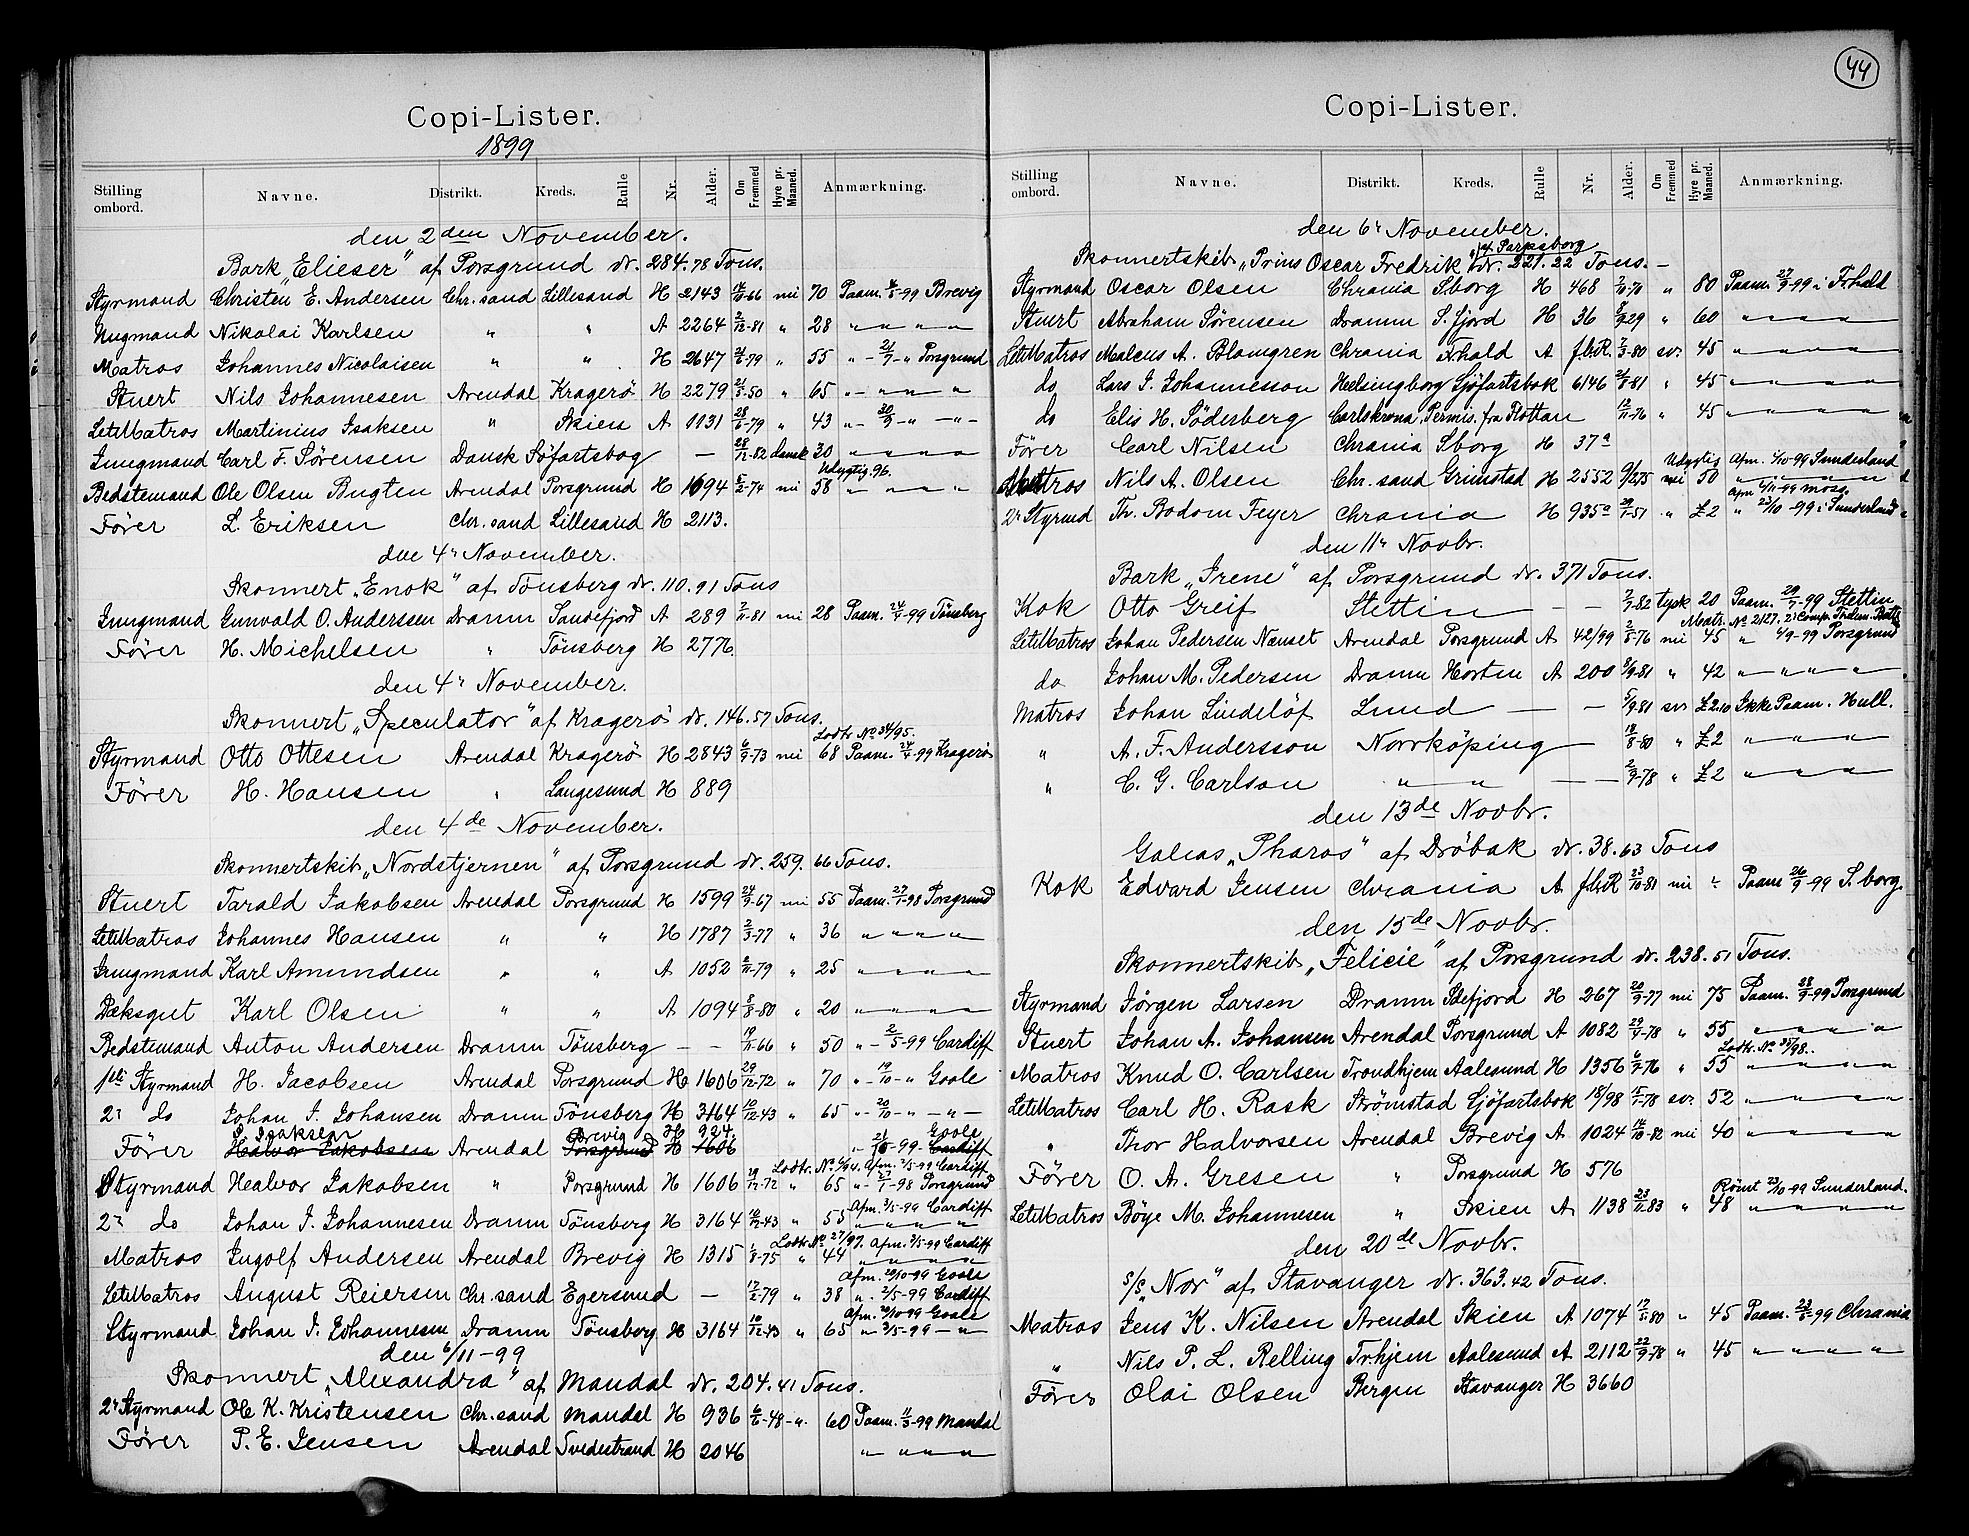 Copi-Lister.
1899
Stilling ombord. Navne. Distrikt. Kreds. Rulle Nr. Alder. Om Fremmed Hyre pr. Maaned. Anmærkning.
den 2den November.
Bark „Elieser" af Porsgrund dr. 284.78 Tons.
Styrmand Christen E. Andersen Chr.sand Lillesand H 2143 -66 nei 70 Paam. -99 Brevig
Jungmand Nikolai Karlsen " " A 2264 2/12-81 " 28 " " " "
Matros Johannes Nicolaisen " " H 2647 -79 " 55 " - 21/7 - " Porsgrund
Stuert Nils Johannesen Arendal Kragerö H 2279 21/3-50 " 65 " - " " "
LetMatros Martinius Isaksen " Skien A 1131 28/6-79 " 43 " - - " - " -
Jungmand Carl F. Sørensen Dansk Söfartsbog — 28/12-82 dansk 30 " " " "
Udygtig 96.
Bedstemand Ole Olsen Bugten Arendal Porsgrund H 1694 5/2-74 nei 58 " " " "
Förer L. Eriksen Chr.sand Lillesand H 2113.
den 4' November.
Skonnert „Enok" af Tönsberg dr. 110.91 Tons
Jungmand Gunvald O. Anderssen Dramn Sandefjord A 289 7/11-81 nei 28 Paam. 24/4-99 Tönsberg
Förer H. Michelsen " Tönsberg H 2776.
den 4' November.
Skonnert „Speculator" af Kragerö dr. 146.57 Tons.
Lodtr. No 34/95.
Styrmand Otto Ottesen Arendal Kragerö H 2843 6/9-73 nei 68 Paam. 24/4-99 Kragerö
Förer H. Hansen " Langesund H 889
den 4de November.
Skonnertskib „Nordstjernen" af Porsgrund dr. 259.66 Tons.
Stuert Tarald Jakobsen Arendal Porsgrund H 1599 24/9-67 nei 55 Paam. 27/1-98 Porsgrund
LetMatros Johannes Hansen " " H 1787 2/3-77 " 36 " " " "
Jungmand Karl Amundsen " " A 1052 2/11-79 " 25 " " " "
Dæksgut Karl Olsen " " A 1094 8/8-80 " 20 " " " "
Bedstemand Anton Andersen Dramn Tönsberg — — 19/11-66 " 50 " - 2/5-99 Cardiff
1ste Styrmand H. Jacobsen Arendal Porsgrund H 1606 29/12-72 " 70 " - 19/10 - " Goole
2' do Johan J. Johansen Dramn Tönsberg H 3164 10/12-43 " 65 " - 20/10 - " - " -
Isaksen Brevig H 924. Goole
Förer Halvor Jakobsen Arendal Porsgrund H 1606 -99 Cardiff
Lodtr. No /94. Afm. 2/5-99 Cardiff
Styrmand Halvor Jakobsen " Porsgrund H 1606 29/12-72 " 65 " 27/1-98 Porsgrund
Afm. 3/5-99 Cardiff
2' do Johan J. Johannesen Dramn Tönsberg H 3164 10/12-43 " 55 " " " "
Lodtr. No 27/97. Afm. 2/5-99 Cardiff
Matros Ingolf Andersen Arendal Brevig H 1315 1/8-75 " 44 " " " "
Afm. 20/10-99 Goole
LetMatros August Reiersen Chr.sand Egersund — 17/2-79 " 38 " 2/5-99 Cardiff
Afm. 20/10-99 Goole
Styrmand Johan J. Johannesen Dramn Tönsberg H 3164 10/12-43 " 65 " 3/5-99 - " -
den 6/11-99
Skonnert „Alexandra" af Mandal dr. 204.41 Tons.
2' Styrmand Ole K. Kristensen Chr.sand Mandal H 936 6/6-48 - " 60 Paam. 11/3-99 Mandal
Förer P. E. Jensen Arendal Tvedestrand H 2046 " " " "
44
Copi-Lister.
Stilling ombord. Navne. Distrikt. Kreds. Rulle Nr. Alder. Om Fremmed Hyre pr. Maaned. Anmærkning.
den 6' November.
Skonnertskib „Prins Oscar Fredrik" af Sarpsborg dr. 221.22 Tons. —
Styrmand Oscar Olsen Chrania Sborg H 468 7/10-70 " 80 Paam. 27/9-99 i Frhald
Stuert Abraham Sørensen Dramn S.fjord H 36 6/9-29 " 60 " " " "
LetMatros Malcus A. Blomgren Chrania Frhald A fhR. 7/3-80 sv. 45 " " " "
do Lars J. Johannesson Helsingborg Sjöfartsbok 6146 21/8-81 " 45 " " " "
do Elis H. Söderberg Carlskrona Permis. fra Flottan 12/11-76 " 45 " " " "
Förer Carl Nilsen Chrania Sborg H 37a
Udygtig Afm. 4/10-99 Sunderland
Matros Nils A. Olsen Chr.sand Grimstad H 2552 9/12 75 nei 50 " " " "
Afm 6/11-99 Moss.
2' Styrmd Th. Bodom Feyer Chrania H 935a 29/1-51 " £2 " 23/10-99 i Sunderland
den 11' Novbr.
Bark „Irene" af Porsgrund dr. 371 Tons.
Kok Otto Greif Stettin — — 2/7-82 tysk 20 Paam. 29/7-99 Stettin
Matr. No 2127. 2' Comp. Trdem. Batl
LetMatros Johan Pedersen Nænset Arendal Porsgrund A 42/99 2/8-76 nei 45 " 4/9-99 Porsgrund
do Johan M. Pedersen Dramn Horten A 200 8/9-81 " 42 " " " "
Matros Johan Lindelöf Lund — — 5/9-81 sv. £2.10 Ikke Paam. Hull.
" A. F. Andersson Norrköping — 18/8-80 " £2 " " " "
" C. G. Carlson " " — — 2/9-78 " £2 " " " "
den 13de Novbr.
Galeas „Pharos" af Dröbak dr. 38.63 Tons
Kok Edvard Jensen Chrania A fhR 23/10-81 nei " Paam 26/9-99 S.borg.
den 15de Novbr.
Skonnertskib „Felicie" af Porsgrund dr. 238.51 Tons.
Styrmand Jørgen Larsen Dramn Sdefjord H 267 20/9-77 nei 75 Paam. 28/9-99 Porsgrund
Stuert Johan A. Johansen Arendal Porsgrund A 1082 29/9-78 " 55 " " " "
Lodtr. No 35/98.
Matros Knud O. Carlsen Trondhjem Aalesund H 1356 6/7-76 " 55 " " " "
LetMatros Carl H. Rask Strømstad Sjöfartsbok 18/98 15/1-78 sv. 52 " " " "
" Thor Halvorsen Arendal Brevig A 1024 12/10-82 nei 40 " " " "
Förer O. A. Gresen " Porsgrund H 576
Römt 23/10-99 Sunderland.
LetMatros Böye M. Johannesen " Skien A 1138 23/11-83 " 48 " " " "
den 20de Novbr.
S/S „Nor" af Stavanger dr. 363.42 Tons.
Matros Jens K. Nilsen Arendal Skien A 1074 17/5-80 " 45 Paam. -99 Chrania
" Nils P. L. Relling Tr.hjem Aalesund A 2112 22/9-78 " 45 " " " "
Förer Olai Olsen Bergen Stavanger H 3660